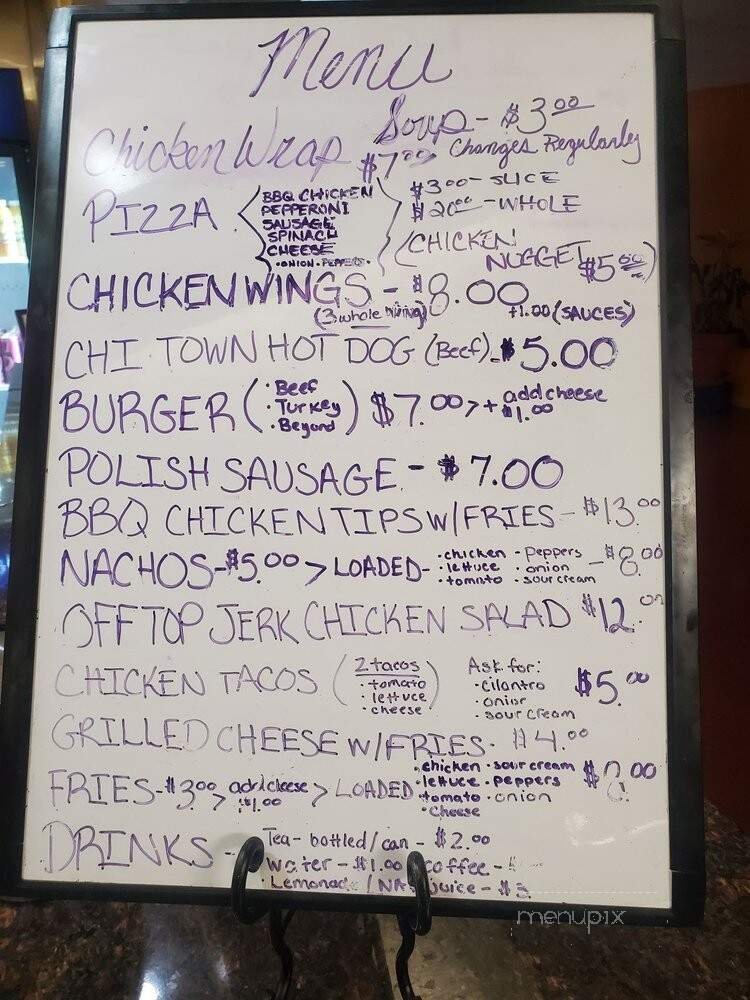 Menu
Soup - $3.00
Chicken Wrap $7.00 Changes Regularly
PIZZA
BBQ CHICKEN
PEPPERONI
SAUSAGE
SPINACH
CHEESE
• ONION • PEPPERS •
$3.00 - SLICE
$20.00 - WHOLE
(CHICKEN NUGGET $5.00)
CHICKEN WINGS - $8.00
(3 whole wing) +1.00 (SAUCES)
CHI TOWN HOT DOG (Beef) - $5.00
BURGER ( • Beef
• Turkey
• Beyond ) $7.00 > + add cheese
$1.00
POLISH SAUSAGE - $7.00
BBQ CHICKEN TIPS W/FRIES - $13.00
NACHOS - $5.00 > LOADED - • chicken • peppers - $8.00
• lettuce • onion
• tomato • sour cream
OFF TOP JERK CHICKEN SALAD $12.00
CHICKEN TACOS (2 tacos
• tomato
• lettuce
• cheese )
Ask for:
• cilantro
• onion
• sour cream
$5.00
GRILLED CHEESE W/FRIES - $4.00
FRIES - $3.00 > add cheese
$1.00 > LOADED
• chicken • sour cream
• lettuce • peppers
tomato • onion
• cheese
$8.00
DRINKS -
Tea - bottled/can - $2.00
water - $1.00 coffee -
• Lemonade / juice -
menupix